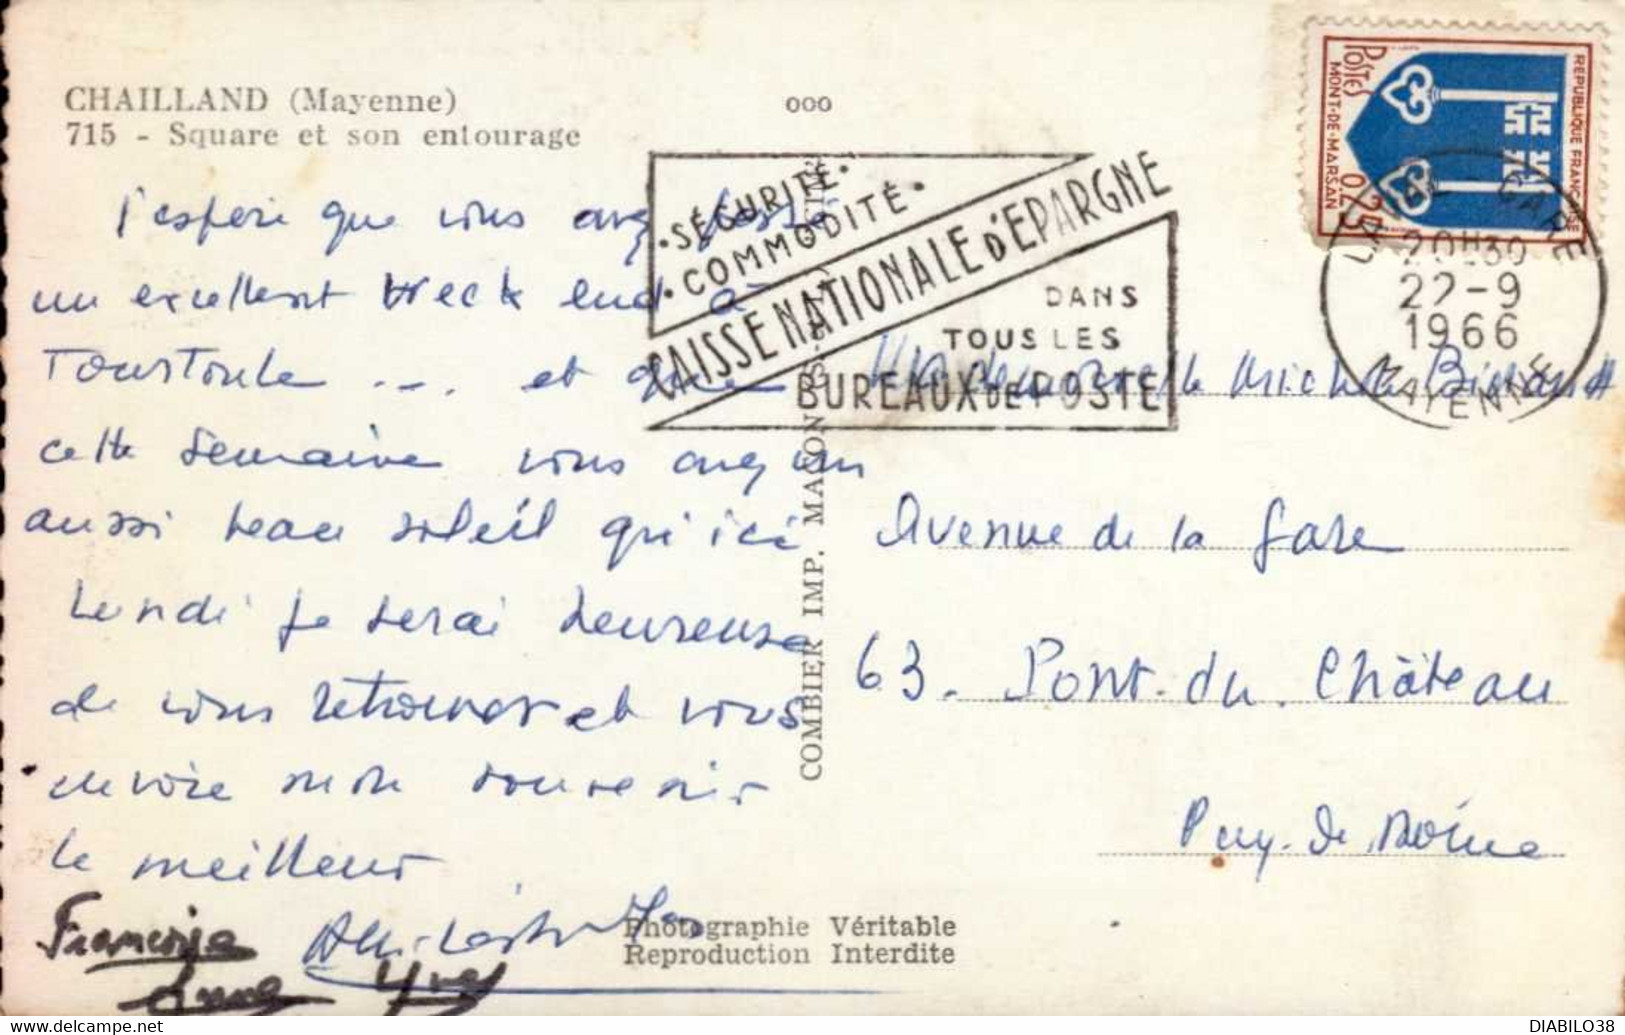 CHAILLAND (Mayenne)
715 - Square et son entourage
ooo
J'espère que vous avez passé
un excellent Week end à
Tourtoule .... et que
cette semaine vous avez un
aussi beau soleil qu'ici
Lundi je serai heureuse
de vous retrouver et vous
envoie mon souvenir
le meilleur
Françoise
Anne Yves
• SÉCURITÉ •
• COMMODITÉ •
CAISSE NATIONALE d'ÉPARGNE
DANS
TOUS LES
BUREAUX DE POSTE
COMBIER IMP. MACON
REPUBLIQUE FRANÇAISE
POSTES
MONT-DE-MARSAN
0,25
LAVAL GARE
20H30
22-9
1966
MAYENNE
Mademoiselle Michèle
Avenue de la Gare
63. Pont-du-Château
Puy-de-Dôme
Photographie Véritable
Reproduction Interdite
DIABILO38